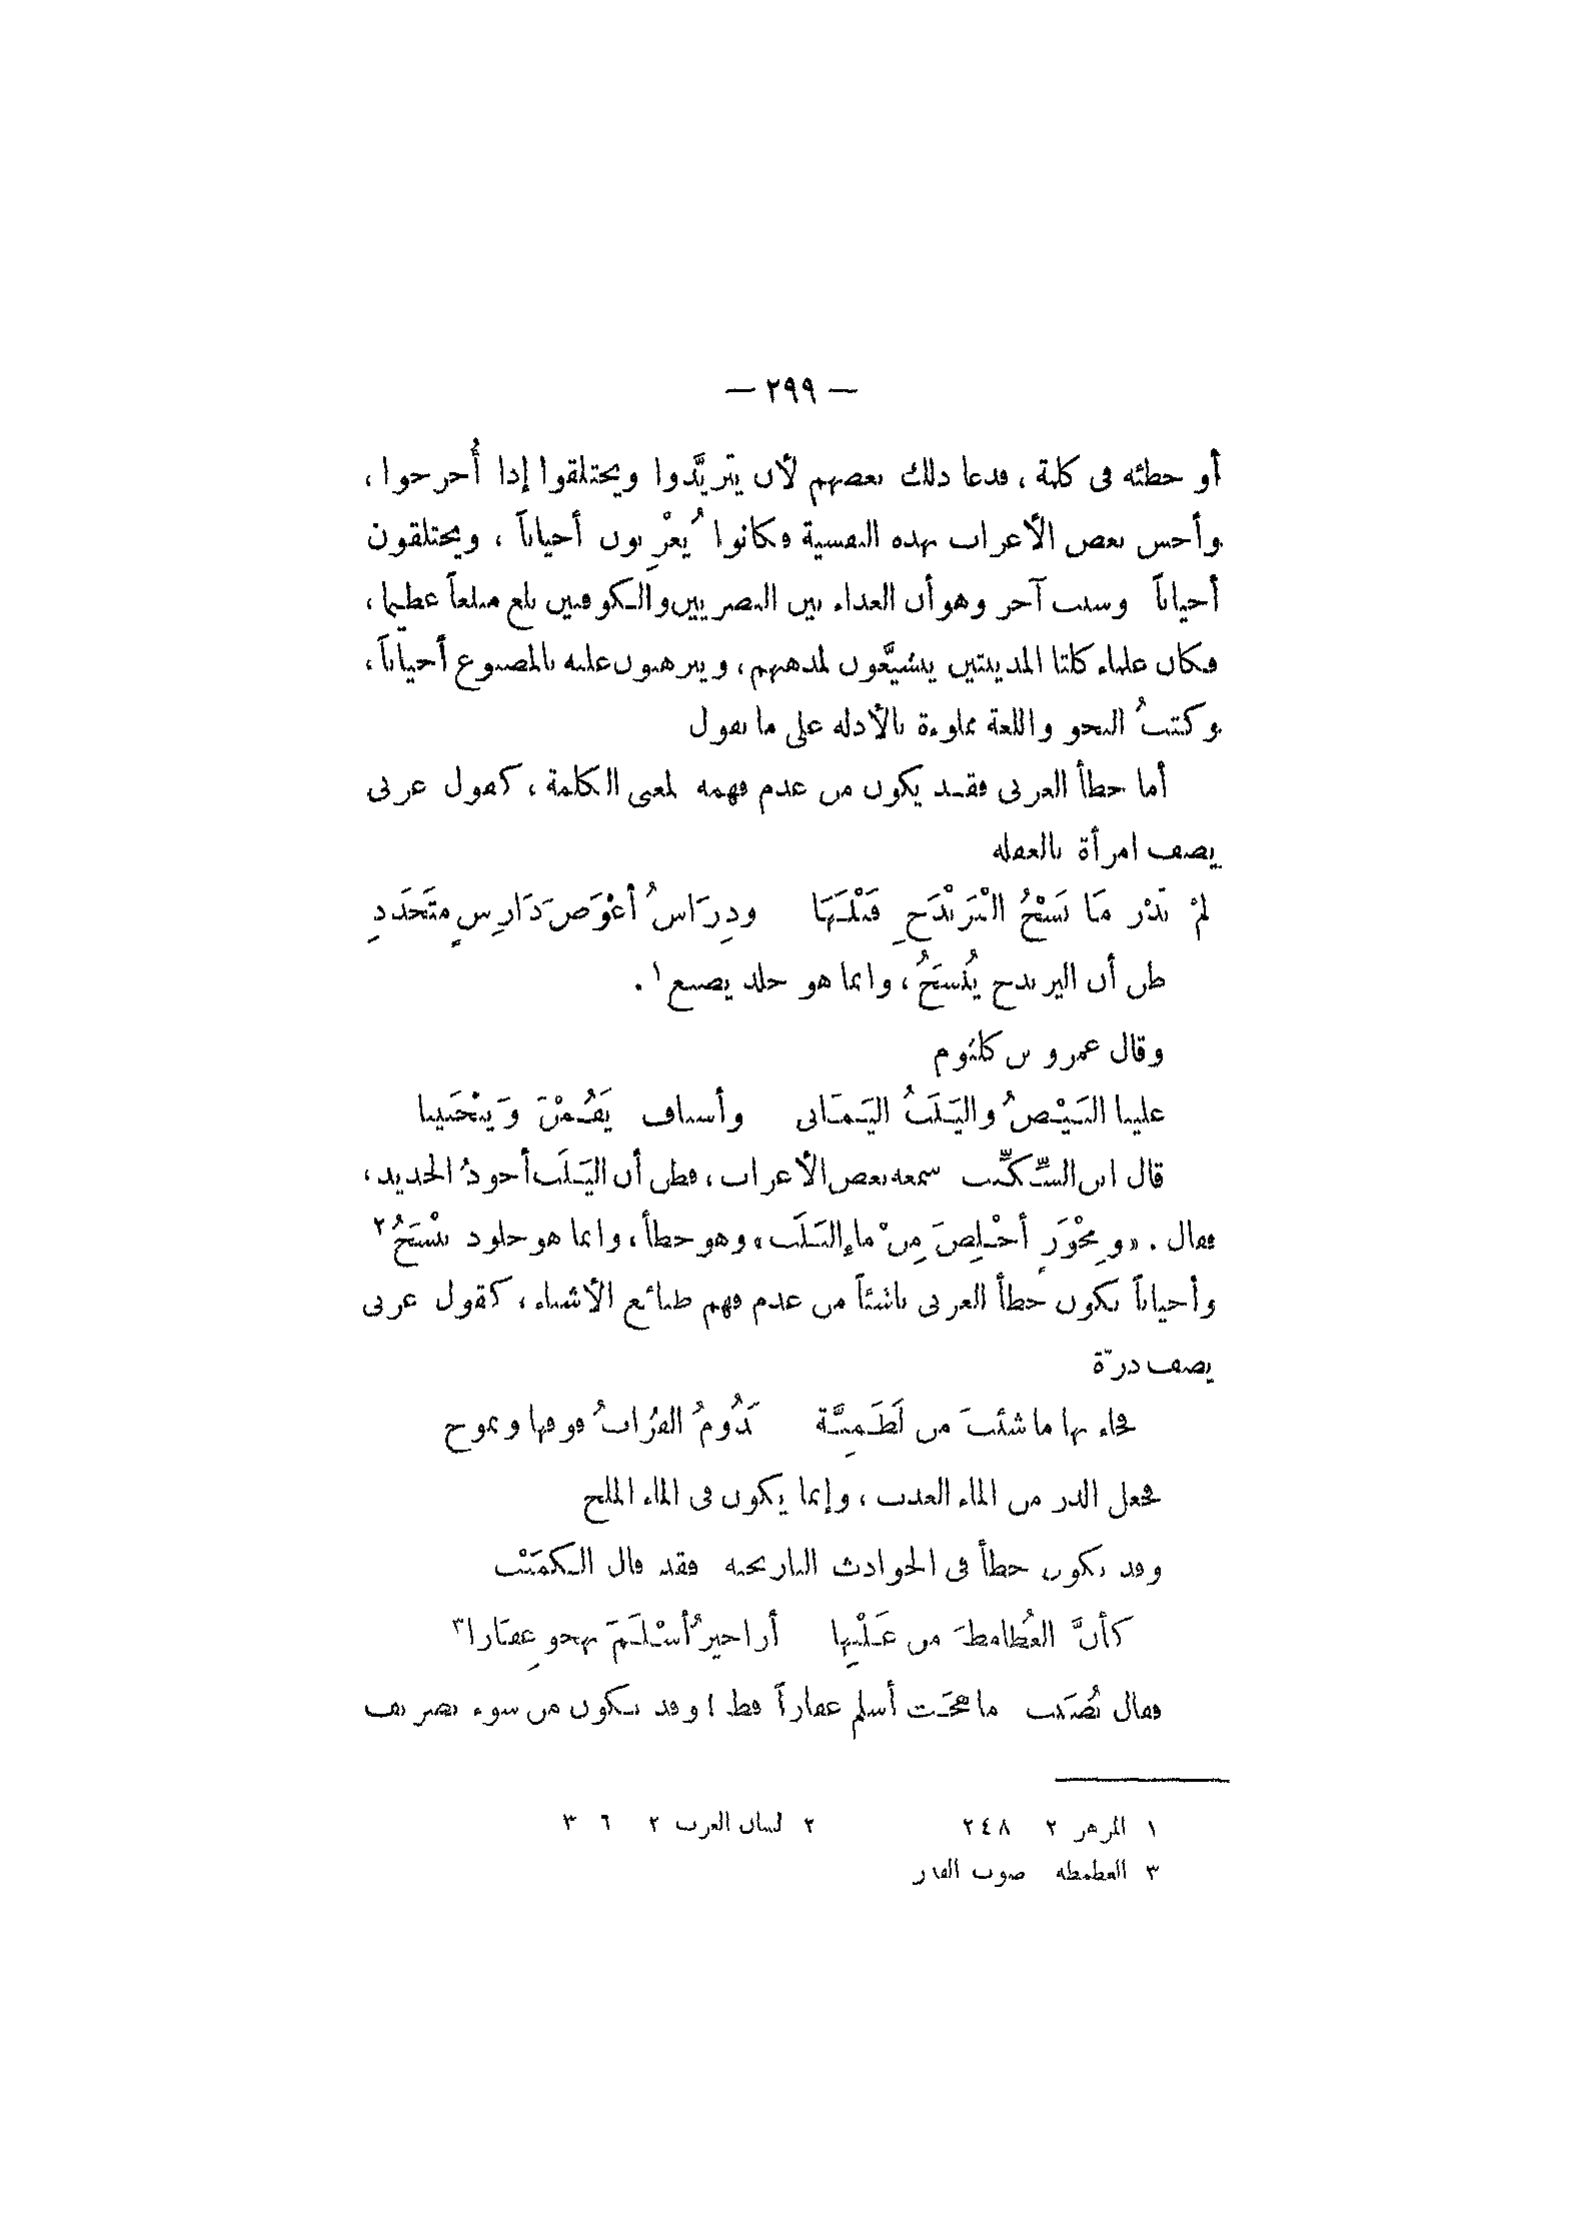 — ٢٩٩ —
أو خطئه فى كلمة ، فدعا ذلك بعضهم لأن يتزيَّدوا ويختلقوا إذا أُحرجوا ،
وأحس بعض الأعراب بهذه النفسية فكانوا يُعْرِبون أحياناً ، ويختلقون
أحياناً وسبب آخر وهو أن العداء بين البصريين والكوفيين بلغ مبلغاً عظيما ،
فكان علماء كلتا المدينتين يتشيَّعون لمذهبهم ، ويبرهنون عليه بالمصنوع أحياناً ،
وكتبُ النحو واللغة مملوءة بالأدلة على ما نقول
أما خطأ العربى فقد يكون من عدم فهمه لمعنى الكلمة ، كقول عربى
يصف امرأة بالغفلة
لمْ تدْر مَا نَسْجُ اليَرَنْدَجِ قَبْلَهَا ودِرَاسُ أعْوَصَ دَارِسٍ متَخَدِّدِ
ظن أن اليرندج يُنسَجُ ، وانما هو جلد يصبغ ١ .
وقال عمرو بن كلثوم
علينا البَيْضُ واليَلَبُ اليَمَانى وأسياف يَقُمْنَ وَيَنْحَنينا
قال ابن السِّكِّيت سمعه بعض الأعراب ، فظن أن اليَلَب أجودُ الحديد ،
فقال . « ومِحْوَرٍ أخْلِصَ مِنْ ماءِ اليَلَب » وهو خطأ ، وانما هو جلود تنْسَجُ ٢
وأحياناً يكون خطأ العربى ناشئاً من عدم فهم طبائع الأشياء ، كقول عربى
يصف درّة
فجاء بها ما شئتَ من لَطَمِيَّة تَدُومُ الفُرَاتُ فوقها وتموج
فجعل الدر من الماء العذب ، وإنما يكون فى الماء الملح
وقد يكون خطأ فى الحوادث التاريخية فقد قال الكمَيْت
كأنَّ الغُطامِطَ من غَلْيِها أراجيزُ أسْلَمَ تهجو غِفَارا ٣
فقال نُصَيْب ما هجَت أسلم غفاراً قط ! وقد يكون من سوء تصريف
١ المزهر ٢ ٢٤٨
٢ لسان العرب ٢ ٣٠٦
٣ الغطمطة صوت القدر